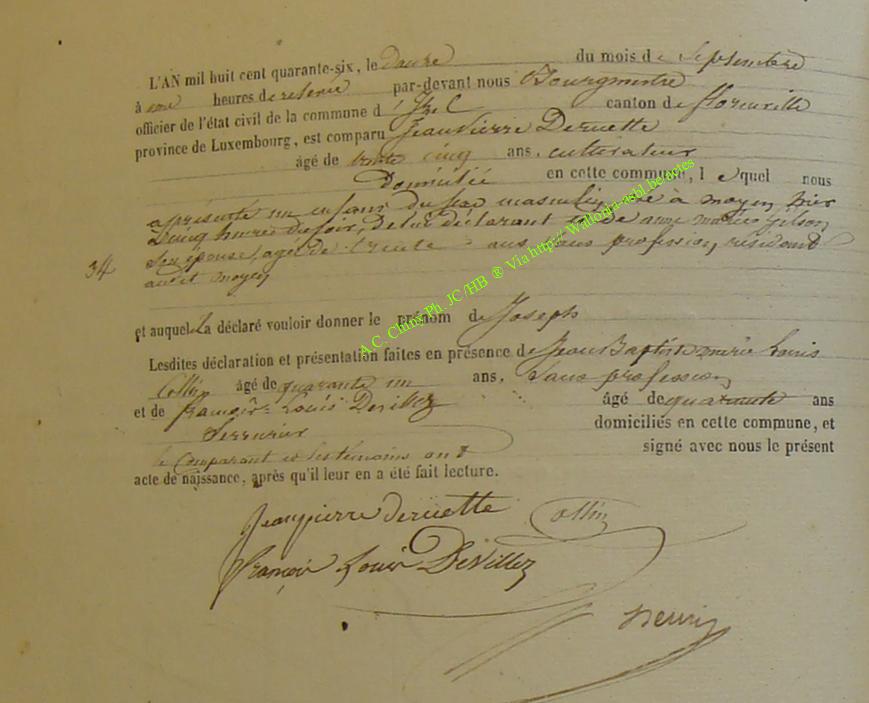 L'AN mil huit cent quarante-six, le douze du mois de septembre
à onze heures de relevée par-devant nous Bourgmestre
officier de l'état civil de la commune d'Izel canton de florenville
province de Luxembourg, est comparu Jean Pierre Deruette
âgé de trente cinq ans, cultivateur
Domicilié en cette commune, lequel nous
a présenté un enfant du sexe masculin, né à moyen, hier
à cinq heures du soir, de lui déclarant et de anne marie Gilson
son épouse, agée de trente ans sans profession, résidant
34 audit moyen
et auquel il a déclaré vouloir donner le prénom de Joseph
Lesdites déclaration et présentation faites en présence de Jean Baptiste marie Louis
Collin âgé de quarante un ans, sans profession
et de françois Louis Devillez âgé de quarante ans
Serrurier domiciliés en cette commune, et
le Comparant et les témoins ont signé avec nous le présent
acte de naissance, après qu'il leur en a été fait lecture.
Jeanpierre deruette Collin
françois Louis DeVillez
henri
A.C. Chiny Ph. JC /HB ® Via http:// Wallonia-asbl.be.actes